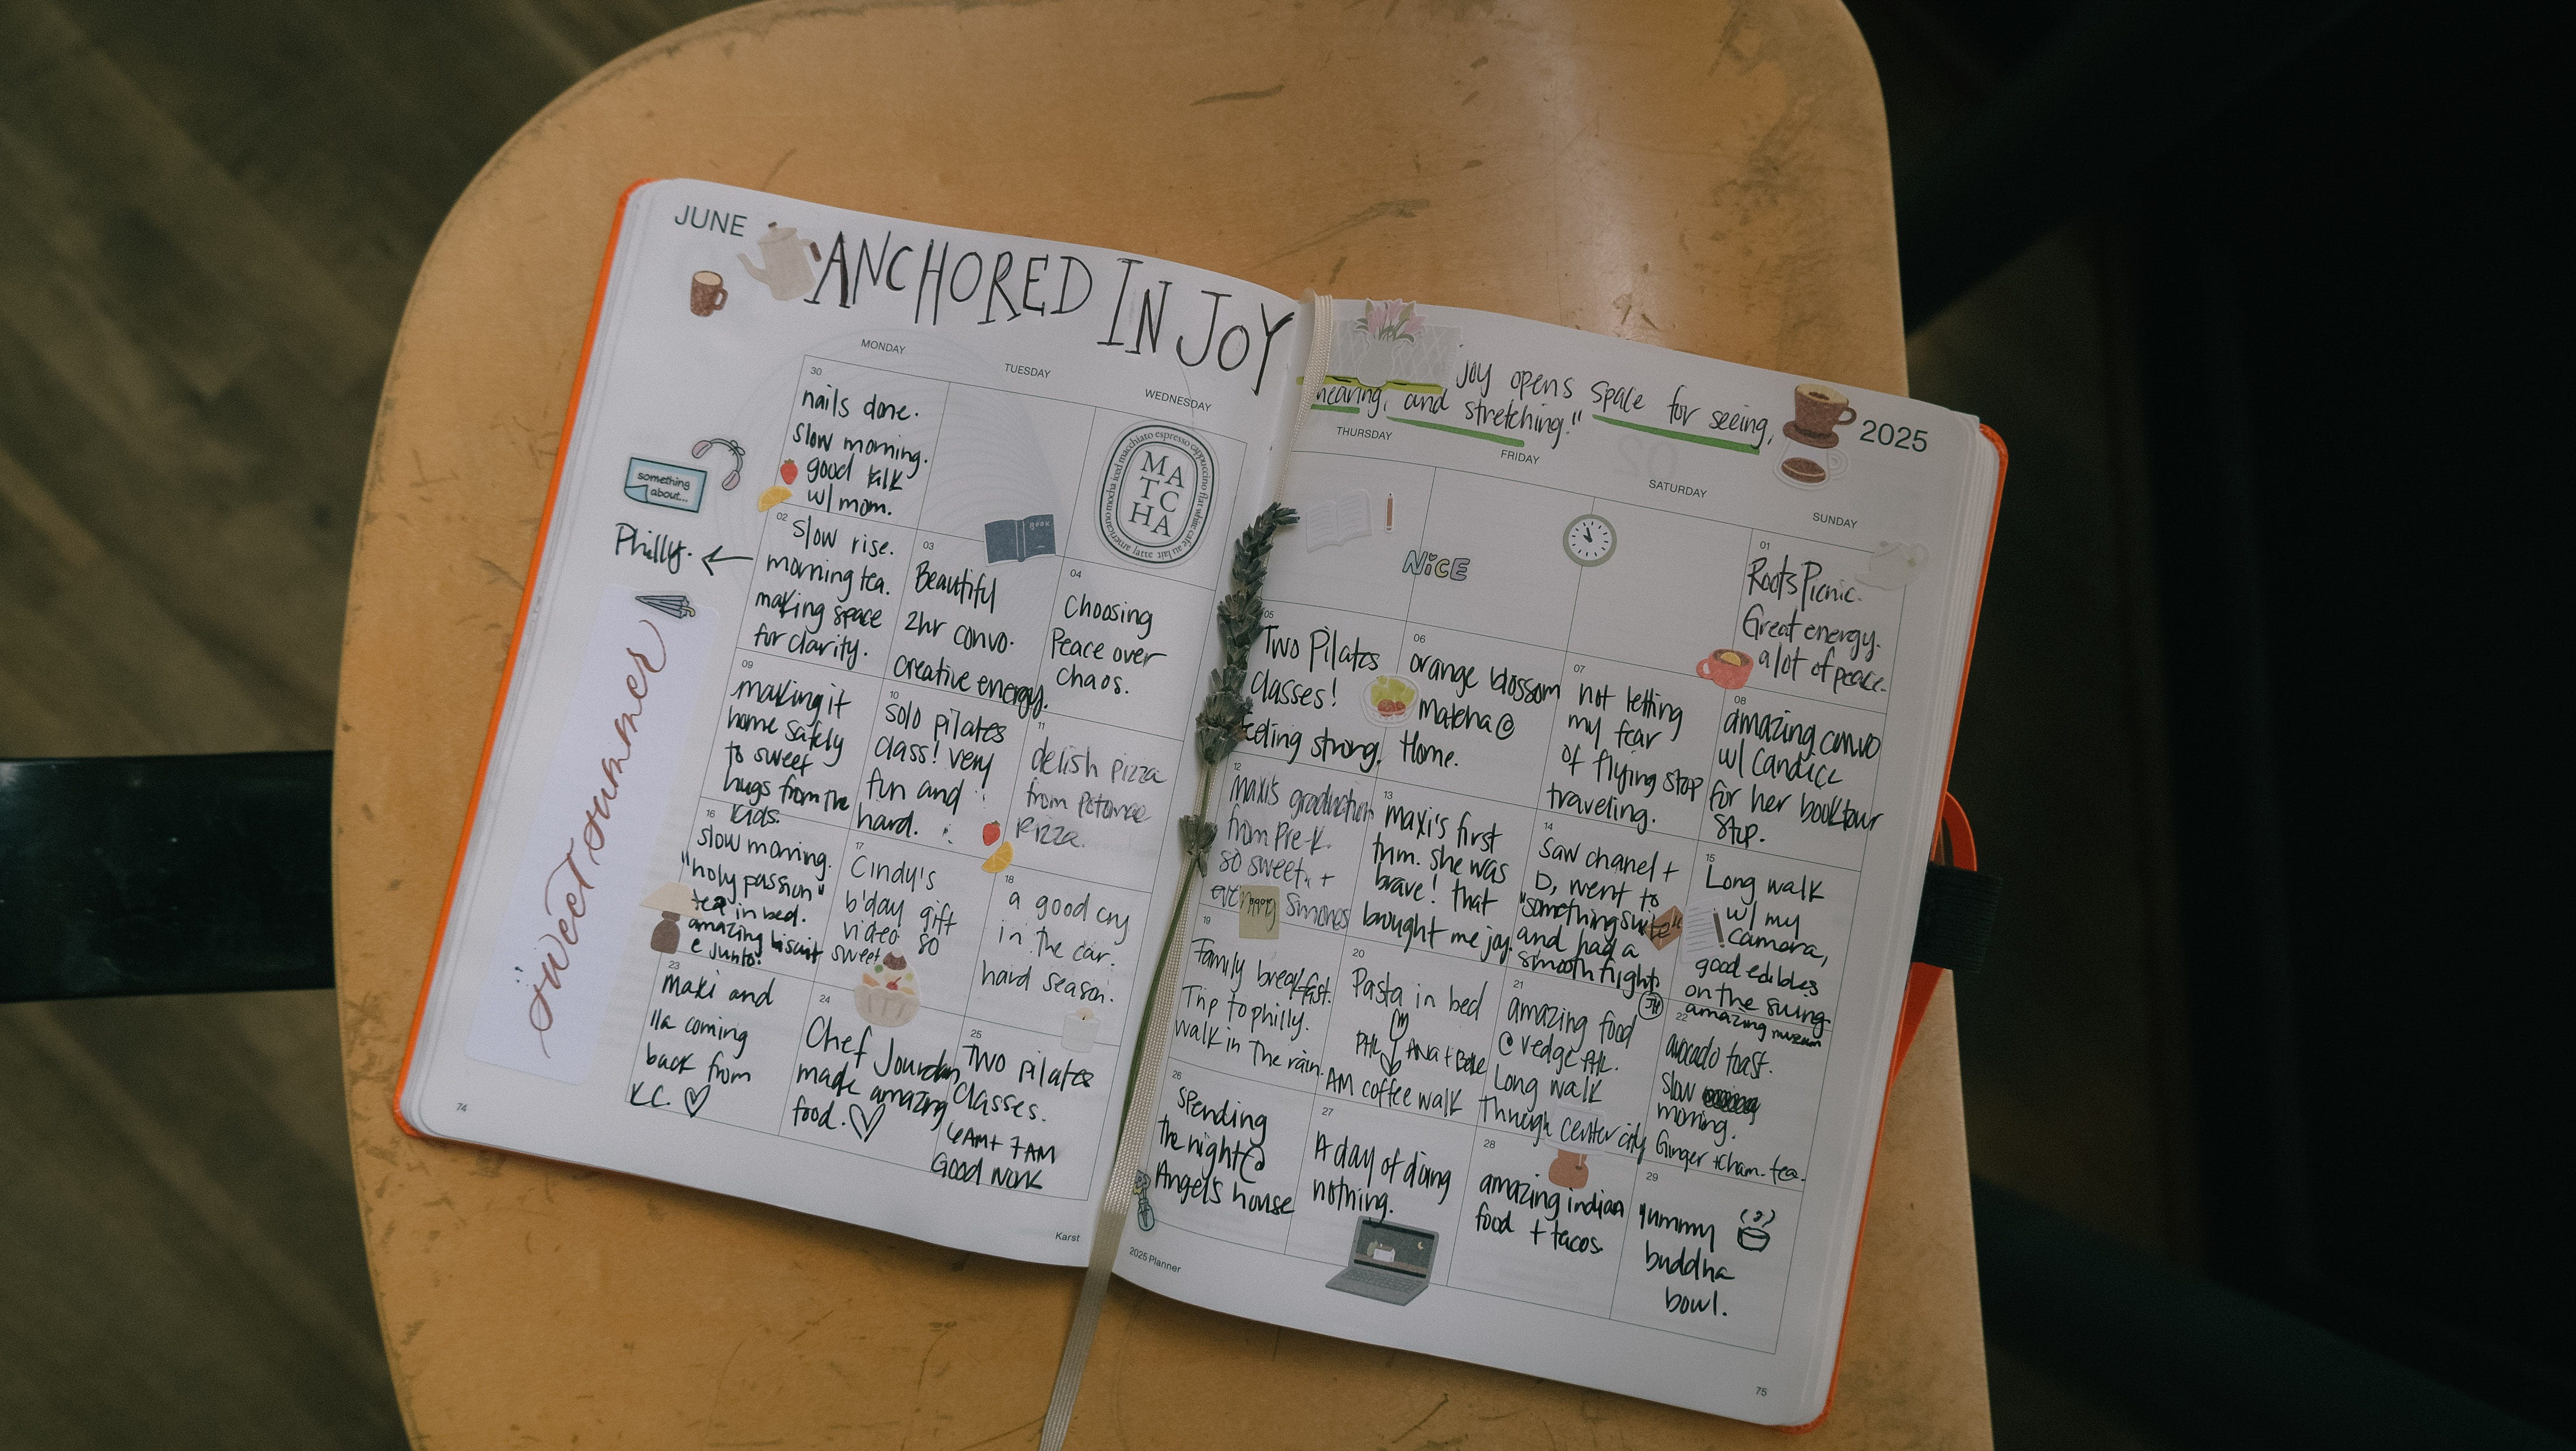 JUNE
ANCHORED IN JOY
joy opens space for seeing,
hearing, and stretching."
2025
MONDAY
TUESDAY
WEDNESDAY
THURSDAY
FRIDAY
SATURDAY
SUNDAY
30
nails done.
slow morning.
good talk
w/ mom.
MA
TC
HA
americano mocha iced macchiato espresso cappuccino flat white cafe au lait latte
BOOK
NiCE
something
about...
Philly.
sweet summer
01
Roots Picnic.
Great energy.
a lot of peace.
02
slow rise.
morning tea.
making space
for clarity.
03
Beautiful
2hr convo.
creative energy.
04
Choosing
Peace over
chaos.
05
Two Pilates
classes!
feeling strong.
06
orange blossom
matcha @
Home.
07
not letting
my fear
of flying stop
traveling.
08
amazing convo
w/ Candice
for her book tour
stop.
09
making it
home safely
to sweet
hugs from the
kids.
10
solo pilates
class! very
fun and
hard.
11
delish pizza
from Potomac
Pizza.
12
maxi's graduation
from Pre-K.
so sweet. +
Simones
13
maxi's first
trim. she was
brave! that
brought me joy.
14
Saw chanel +
D, went to
"something suite"
and had a
smooth flight.
15
Long walk
w/ my
camera,
good edibles
on the swing
amazing museum
16
slow morning.
"holy passion"
tea in bed.
amazing biscuit
@ Junto!
17
Cindy's
b'day gift
video so
sweet
18
a good cry
in the car.
hard season.
19
Family breakfast.
Trip to philly.
walk in the rain.
20
Pasta in bed
PHL
AM coffee walk
21
amazing food
@ vedge PHL.
Long walk
through center city
22
avocado toast.
slow
morning.
Ginger + cham. tea.
23
maxi and
coming
back from
K.C.
24
Chef Jourdan
made amazing
food.
25
Two pilates
classes.
6AM + 7AM
Good work
26
spending
the night @
Angel's house
27
A day of doing
nothing.
28
amazing indian
food + tacos
29
yummy
buddha
bowl.
74
Karst
2025 Planner
75